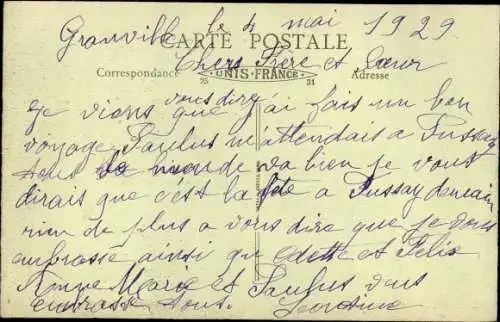 Granville le 4 mai 1929
CARTE POSTALE
Chers Frère et Sœur
Correspondance UNIS-FRANCE Adresse
vous dire
Je viens que j'ai fais un bon
voyage Paulus m'attendais a Tussay
tous le monde va bien je vous
dirais que c'est la fête a Tussay demain
rien de plus a vous dire que je vous
embrasse ainsi que Odette et Félix
Anne Marie et Paulus vous
embrasse tous.